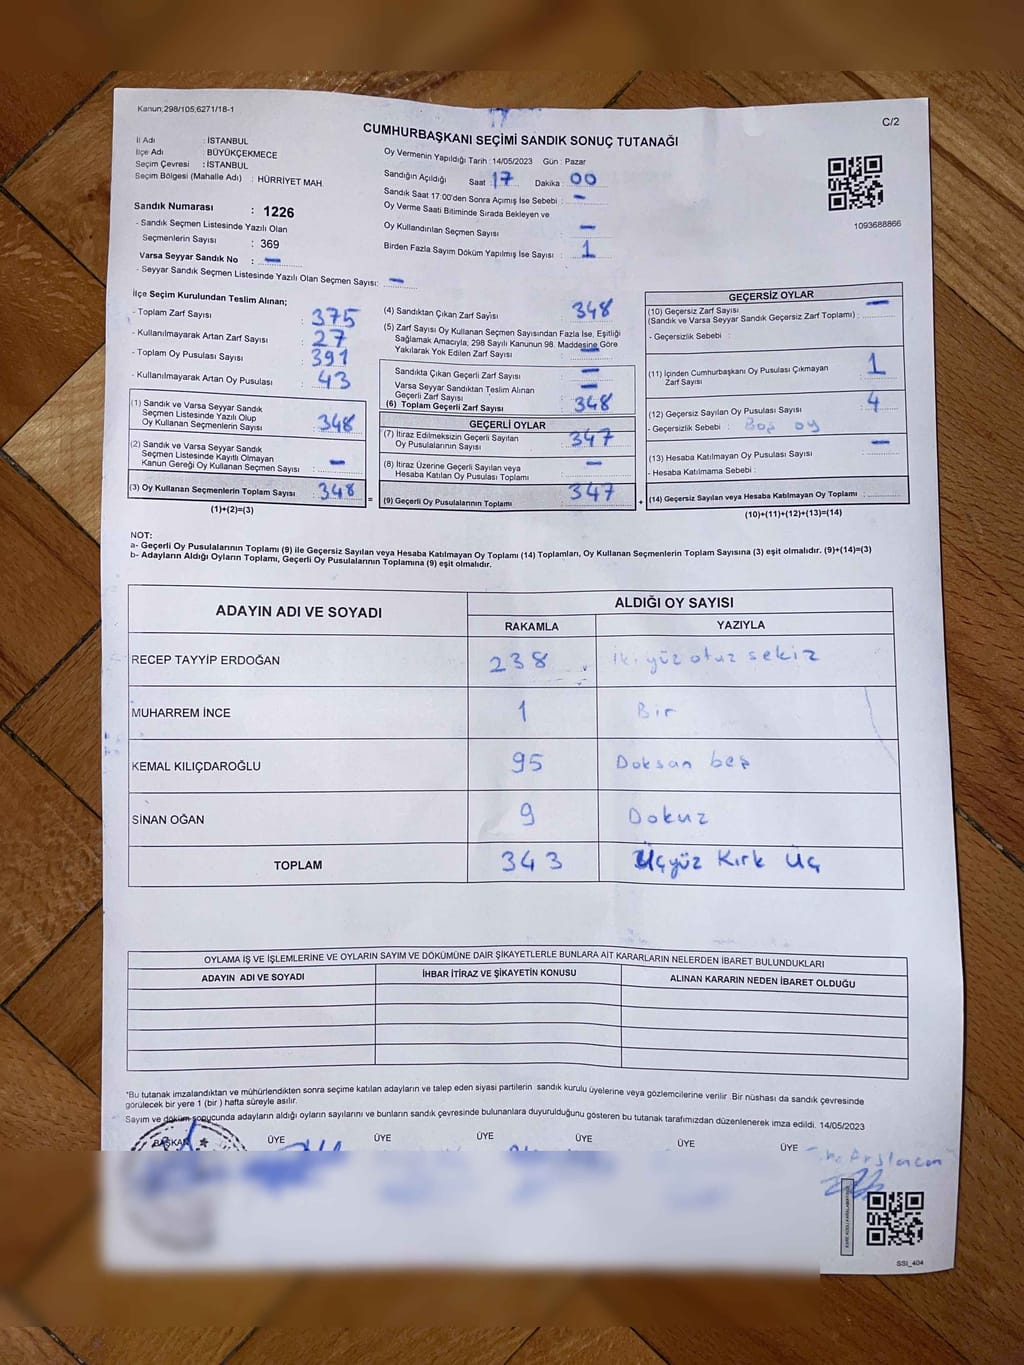 Kanun;298/105,6271/18-1
C/2
CUMHURBAŞKANI SEÇİMİ SANDIK SONUÇ TUTANAĞI
İl Adı : İSTANBUL
İlçe Adı : BÜYÜKÇEKMECE
Seçim Çevresi : İSTANBUL
Seçim Bölgesi (Mahalle Adı) : HÜRRİYET MAH.
Sandık Numarası : 1226
- Sandık Seçmen Listesinde Yazılı Olan
Seçmenlerin Sayısı : 369
Varsa Seyyar Sandık No : -
- Seyyar Sandık Seçmen Listesinde Yazılı Olan Seçmen Sayısı: -
Oy Vermenin Yapıldığı Tarih : 14/05/2023 Gün : Pazar
Sandığın Açıldığı Saat : 17 Dakika : 00
Sandık Saat 17:00'den Sonra Açımış İse Sebebi : -
Oy Verme Saati Bitiminde Sırada Bekleyen ve
Oy Kullandırılan Seçmen Sayısı : -
Birden Fazla Sayım Döküm Yapılmış İse Sayısı : 1
1093688866
İlçe Seçim Kurulundan Teslim Alınan;
- Toplam Zarf Sayısı : 375
- Kullanılmayarak Artan Zarf Sayısı : 27
- Toplam Oy Pusulası Sayısı : 391
- Kullanılmayarak Artan Oy Pusulası : 43
(1) Sandık ve Varsa Seyyar Sandık
Seçmen Listesinde Yazılı Olup
Oy Kullanan Seçmenlerin Sayısı : 348
(2) Sandık ve Varsa Seyyar Sandık
Seçmen Listesinde Kayıtlı Olmayan
Kanun Gereği Oy Kullanan Seçmen Sayısı : -
(3) Oy Kullanan Seçmenlerin Toplam Sayısı : 348
(1)+(2)=(3)
=
(4) Sandıktan Çıkan Zarf Sayısı : 348
(5) Zarf Sayısı Oy Kullanan Seçmen Sayısından Fazla İse, Eşitliği
Sağlamak Amacıyla; 298 Sayılı Kanunun 98. Maddesine Göre
Yakılarak Yok Edilen Zarf Sayısı : -
Sandıkta Çıkan Geçerli Zarf Sayısı : -
Varsa Seyyar Sandıktan Teslim Alınan
Geçerli Zarf Sayısı : -
(6) Toplam Geçerli Zarf Sayısı : 348
GEÇERLİ OYLAR
(7) İtiraz Edilmeksizin Geçerli Sayılan
Oy Pusulalarının Sayısı : 347
(8) İtiraz Üzerine Geçerli Sayılan veya
Hesaba Katılan Oy Pusulası Toplamı : -
(9) Geçerli Oy Pusulalarının Toplamı : 347
+
GEÇERSİZ OYLAR
(10) Geçersiz Zarf Sayısı
(Sandık ve Varsa Seyyar Sandık Geçersiz Zarf Toplamı) : -
- Geçersizlik Sebebi :
(11) İçinden Cumhurbaşkanı Oy Pusulası Çıkmayan
Zarf Sayısı : 1
(12) Geçersiz Sayılan Oy Pusulası Sayısı : 4
- Geçersizlik Sebebi : Boş oy
(13) Hesaba Katılmayan Oy Pusulası Sayısı : -
- Hesaba Katılmama Sebebi :
(14) Geçersiz Sayılan veya Hesaba Katılmayan Oy Toplamı :
(10)+(11)+(12)+(13)=(14)
NOT:
a- Geçerli Oy Pusulalarının Toplamı (9) ile Geçersiz Sayılan veya Hesaba Katılmayan Oy Toplamı (14) Toplamları, Oy Kullanan Seçmenlerin Toplam Sayısına (3) eşit olmalıdır. (9)+(14)=(3)
b- Adayların Aldığı Oyların Toplamı, Geçerli Oy Pusulalarının Toplamına (9) eşit olmalıdır.
ADAYIN ADI VE SOYADI ALDIĞI OY SAYISI
RAKAMLA YAZIYLA
RECEP TAYYİP ERDOĞAN 238 İki yüz otuz sekiz
MUHARREM İNCE 1 Bir
KEMAL KILIÇDAROĞLU 95 Doksan beş
SİNAN OĞAN 9 Dokuz
TOPLAM 343 Üçyüz Kırk Üç
OYLAMA İŞ VE İŞLEMLERİNE VE OYLARIN SAYIM VE DÖKÜMÜNE DAİR ŞİKAYETLERLE BUNLARA AİT KARARLARIN NELERDEN İBARET BULUNDUKLARI
ADAYIN ADI VE SOYADI İHBAR İTİRAZ VE ŞİKAYETİN KONUSU ALINAN KARARIN NEDEN İBARET OLDUĞU
*Bu tutanak imzalandıktan ve mühürlendikten sonra seçime katılan adayların ve talep eden siyasi partilerin sandık kurulu üyelerine veya gözlemcilerine verilir. Bir nüshası da sandık çevresinde
görülecek bir yere 1 (bir ) hafta süreyle asılır.
Sayım ve döküm sonucunda adayların aldığı oyların sayılarını ve bunların sandık çevresinde bulunanlara duyurulduğunu gösteren bu tutanak tarafımızdan düzenlenerek imza edildi. 14/05/2023
BAŞKAN ÜYE ÜYE ÜYE ÜYE ÜYE ÜYE
Arslan
SSI_404